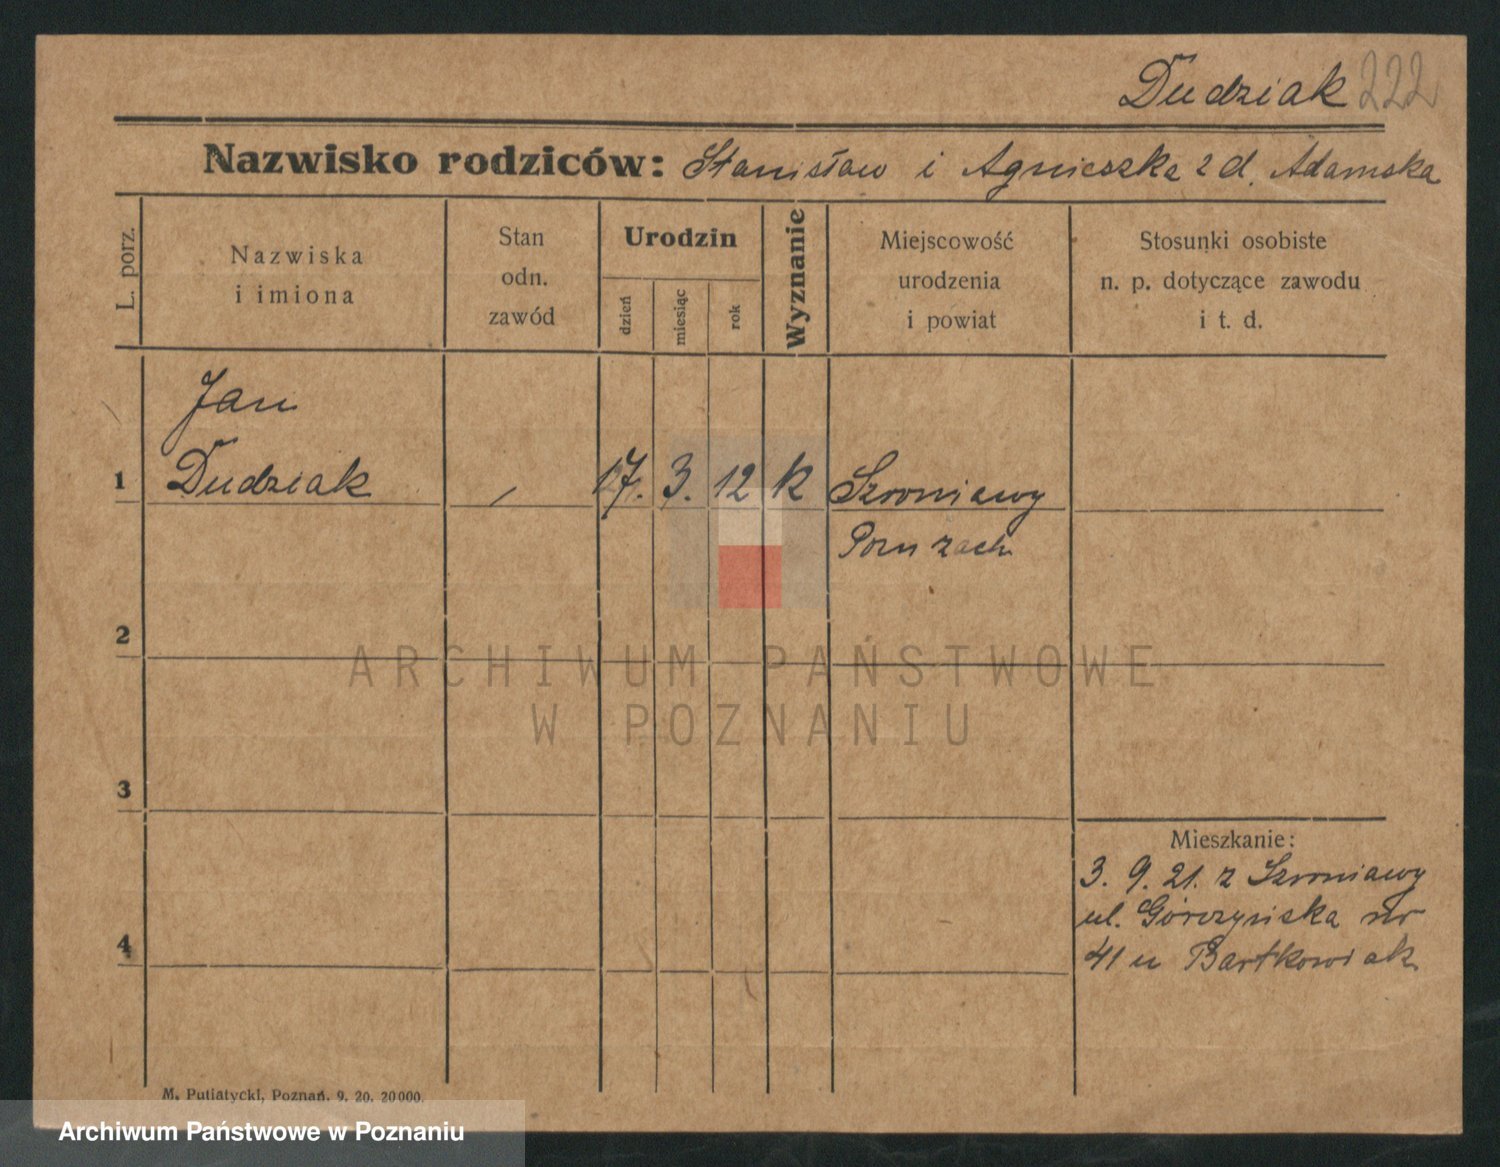 Dudziak 222
Nazwisko rodziców: Stanisław i Agnieszka z d. Adamska
L. porz.
Nazwiska
i imiona
Stan
odn.
zawód
Urodzin
dzień
miesiąc
rok
Wyznanie
Miejscowość
urodzenia
i powiat
Stosunki osobiste
n. p. dotyczące zawodu
i t. d.
Jan
1 Dudziak 17. 3. 12 k Szroniawy
Pozn zach
2
ARCHIWUM PAŃSTWOWE
W POZNANIU
3
Mieszkanie:
3. 9. 21. z Szroniawy
ul. Górczyńska nr
4
41 u Bartkowiak
M. Putiatycki, Poznań. 9. 20. 20000.
Archiwum Państwowe w Poznaniu